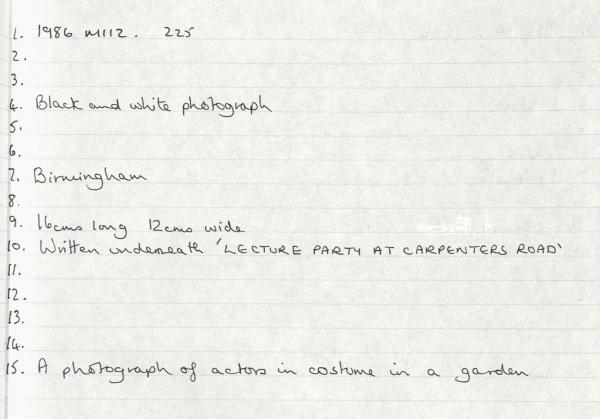 1. 1986 M112. 225
2.
3.
4. Black and white photograph
5.
6.
7. Birmingham
8.
9. 16cms long 12cms wide
10. Written underneath 'LECTURE PARTY AT CARPENTERS ROAD'
11.
12.
13.
14.
15. A photograph of actors in costume in a garden